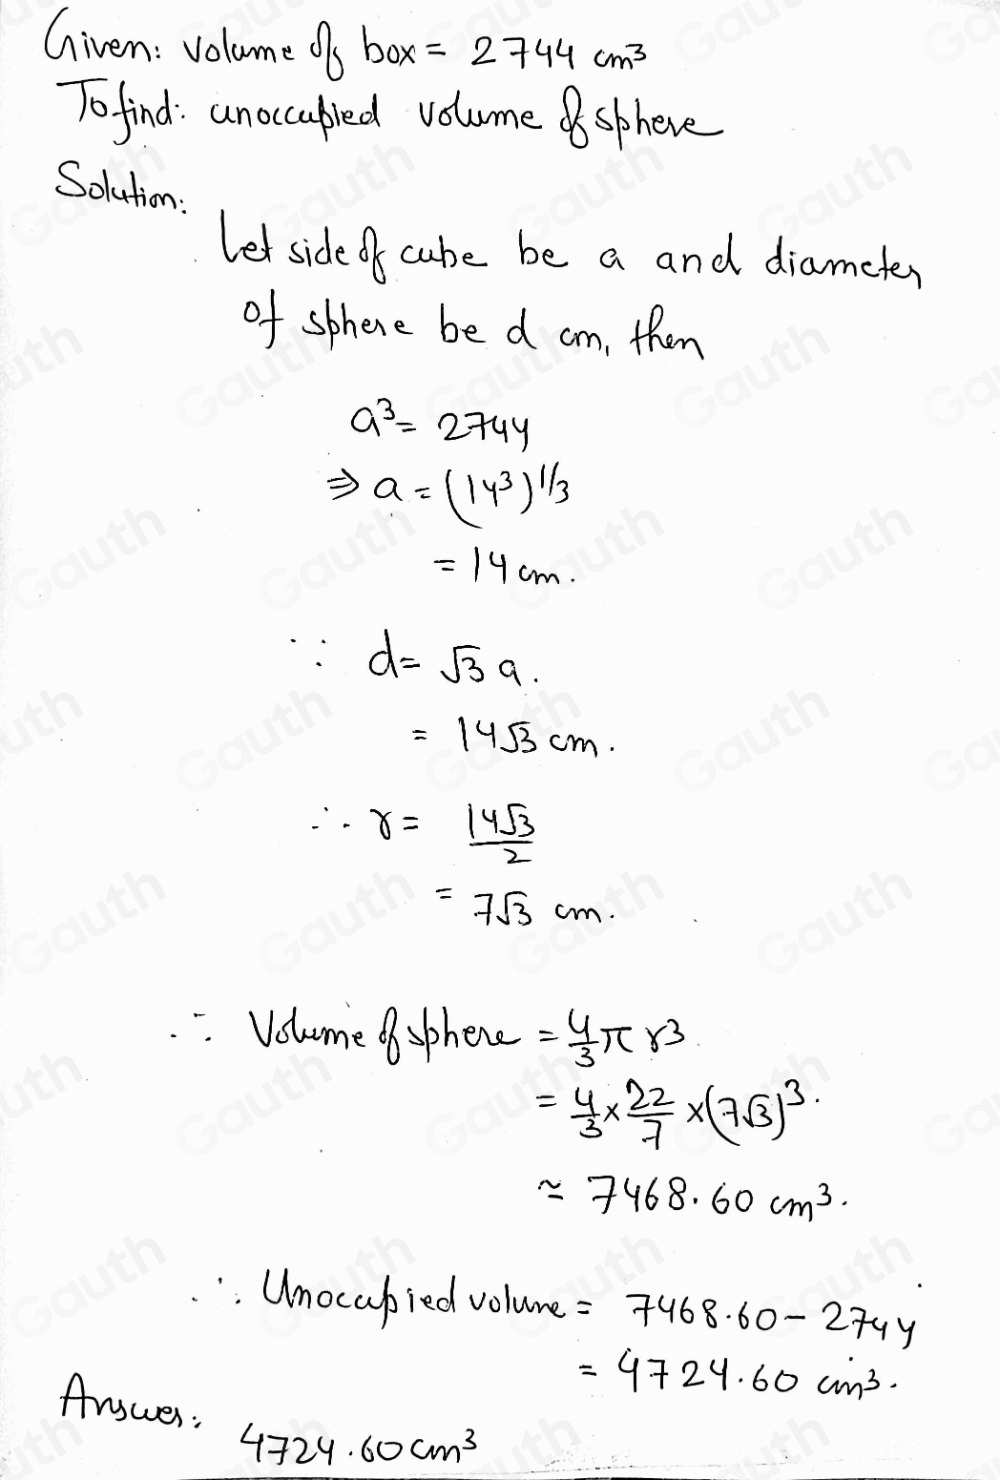 Given: volume of box = 2744 cm³
To find: unoccupied volume of sphere
Solution:
Let side of cube be a and diameter
of sphere be d cm, then
a³ = 2744
⇒ a = (14³)^1/3
= 14 cm.
∵ d = √3 a.
= 14√3 cm.
∴ r = 14√3/2
= 7√3 cm.
∴ Volume of sphere = 4/3 π r³
= 4/3 × 22/7 × (7√3)³.
≈ 7468.60 cm³.
∴ Unoccupied volume = 7468.60 - 2744
= 4724.60 cm³.
Answer:
4724.60 cm³
Gauth